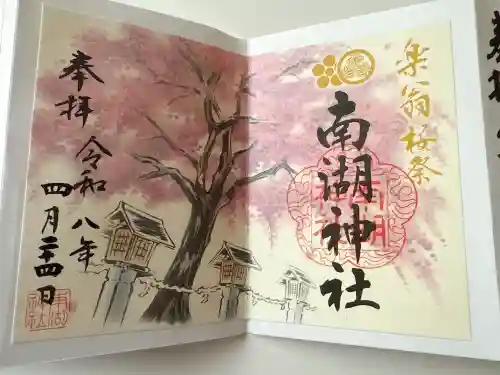 楽翁桜祭
南湖神社
南湖
神社
奉拝
令和八年
四月二十四日